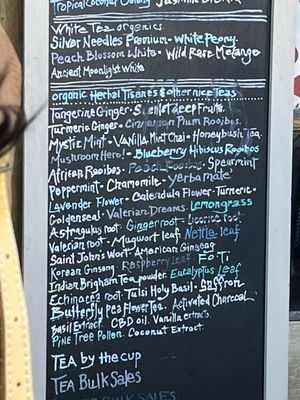 Tropical Coconut Oolong
White Tea organics.
Silver Needles Premium - White Peony.
Peach Blossom White - Wild Rose Melange
Ancient Moonlight White
organic Herbal Tisanes & other nice Teas
Tangerine Ginger - Scarlet deep Fruits.
Turmeric Ginger - Cinnamon Plum Rooibos.
Mystic Mint - Vanilla Mint Chai - Honeybush Tea.
Mushroom Hero! - Blueberry Hibiscus Rooibos
African Rooibos - Peach Rooibos - Spearmint
Peppermint - Chamomile - Yerba mate
Lavender Flower - Calendula Flower - Turmeric -
Goldenseal - Valerian Dreams. Lemongrass
Astragulus root. Ginger root - Licorice root
Valerian root - Mugwort leaf. Nettle leaf
Saint Johns Wort - American Ginseng
Korean Ginseng Raspberry Leaf. Fo Ti
Indian Brigham Tea powder. Eucalyptus Leaf
Echinacea root. Tulsi Holy Basil - Saffron
Butterfly Pea Flower Tea. Activated Charcoal
Basil Extract. CBD oil. Vanilla extracts.
Pine Tree Pollen. Coconut Extract.
TEA by the cup
TEA Bulk Sales
BULK SALES